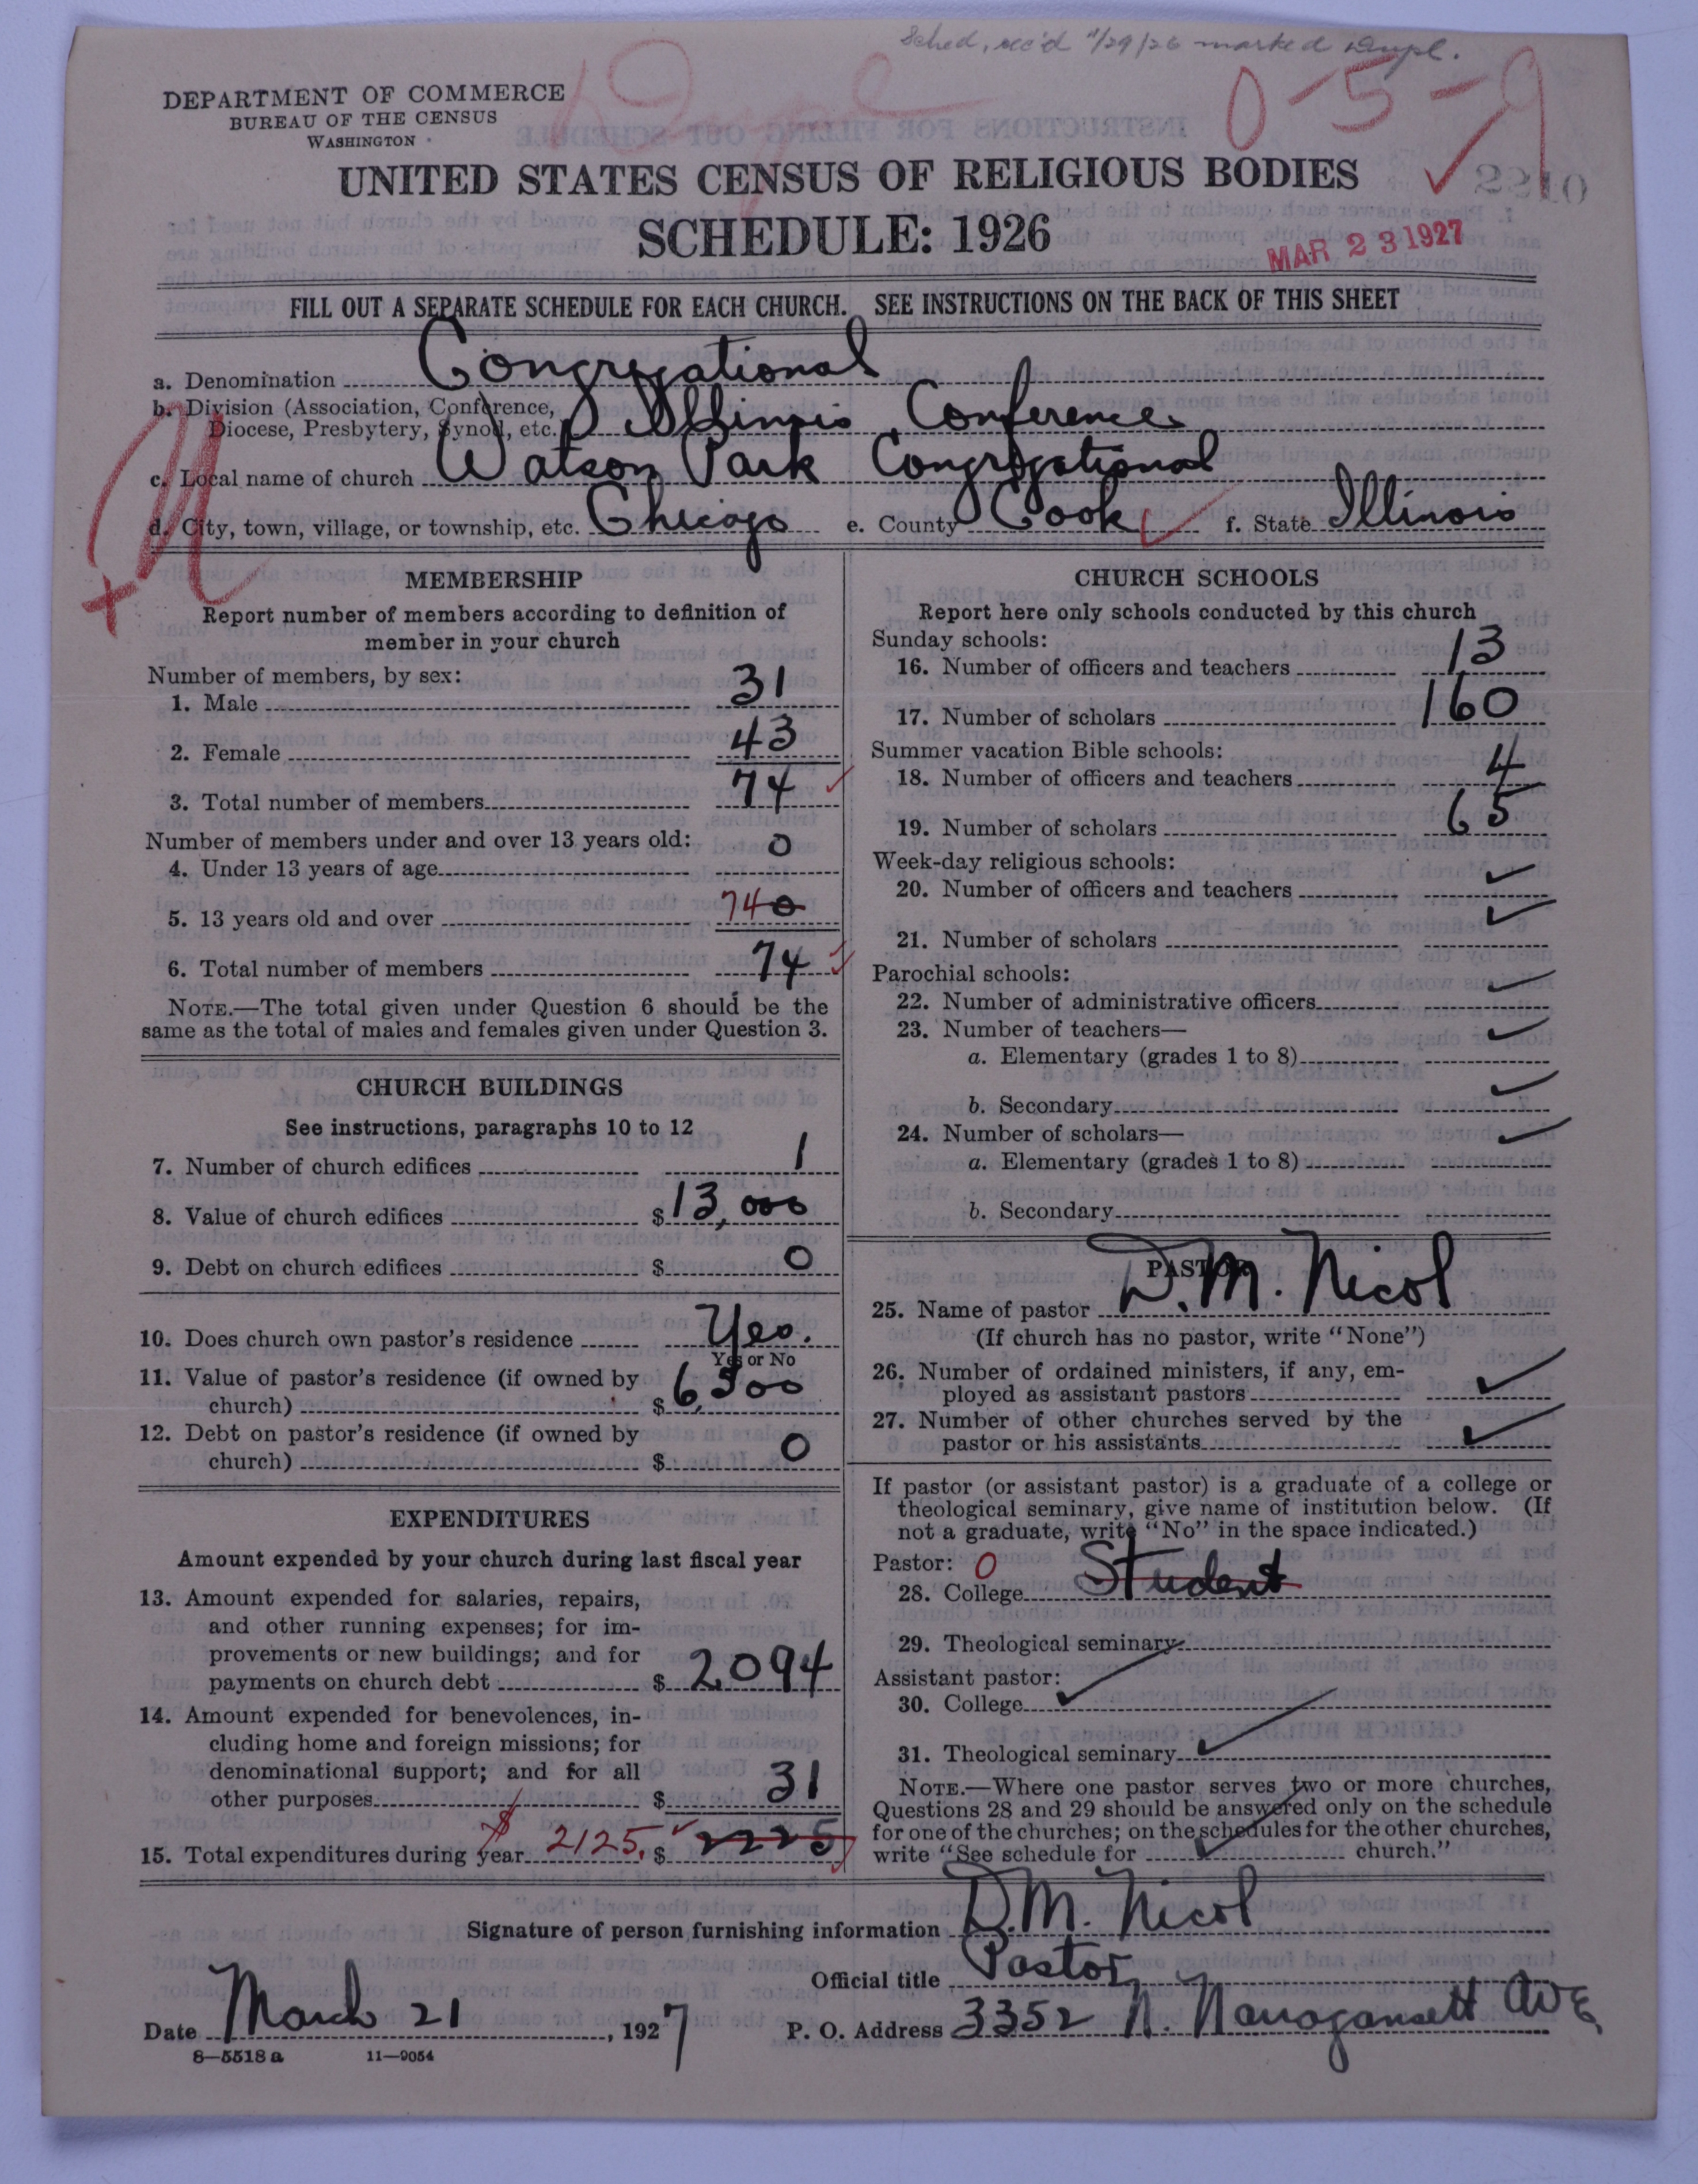 Sched, rec'd 11/29/26 marked Dupl.
0-5-9
DEPARTMENT OF COMMERCE
BUREAU OF THE CENSUS
WASHINGTON
Dupl
UNITED STATES CENSUS OF RELIGIOUS BODIES
2210
SCHEDULE: 1926
MAR 23 1927
FILL OUT A SEPARATE SCHEDULE FOR EACH CHURCH. SEE INSTRUCTIONS ON THE BACK OF THIS SHEET
a. Denomination Congregational
b. Division (Association, Conference,
Diocese, Presbytery, Synod, etc.) Illinois Conference
c. Local name of church Watson Park Congregational
d. City, town, village, or township, etc. Chicago e. County Cook f. State Illinois
MEMBERSHIP
Report number of members according to definition of
member in your church
Number of members, by sex:
1. Male 31
2. Female 43
3. Total number of members 74
Number of members under and over 13 years old:
4. Under 13 years of age 0
5. 13 years old and over 74 0
6. Total number of members 74
NOTE.—The total given under Question 6 should be the
same as the total of males and females given under Question 3.
CHURCH BUILDINGS
See instructions, paragraphs 10 to 12
7. Number of church edifices 1
8. Value of church edifices $13,000
9. Debt on church edifices $ 0
10. Does church own pastor's residence Yes.
Yes or No
11. Value of pastor's residence (if owned by
church) $6,500
12. Debt on pastor's residence (if owned by
church) $ 0
EXPENDITURES
Amount expended by your church during last fiscal year
13. Amount expended for salaries, repairs,
and other running expenses; for im-
provements or new buildings; and for
payments on church debt $ 2094
14. Amount expended for benevolences, in-
cluding home and foreign missions; for
denominational support; and for all
other purposes $ 31
15. Total expenditures during year $ 2125. $ 2225
CHURCH SCHOOLS
Report here only schools conducted by this church
Sunday schools:
16. Number of officers and teachers 13
17. Number of scholars 160
Summer vacation Bible schools:
18. Number of officers and teachers 4
19. Number of scholars 65
Week-day religious schools:
20. Number of officers and teachers
21. Number of scholars
Parochial schools:
22. Number of administrative officers
23. Number of teachers—
a. Elementary (grades 1 to 8)
b. Secondary
24. Number of scholars—
a. Elementary (grades 1 to 8)
b. Secondary
PASTOR
25. Name of pastor D. M. Nicol
(If church has no pastor, write "None")
26. Number of ordained ministers, if any, em-
ployed as assistant pastors
27. Number of other churches served by the
pastor or his assistants
If pastor (or assistant pastor) is a graduate of a college or
theological seminary, give name of institution below. (If
not a graduate, write "No" in the space indicated.)
Pastor: 0
28. College Student
29. Theological seminary
Assistant pastor:
30. College
31. Theological seminary
NOTE.—Where one pastor serves two or more churches,
Questions 28 and 29 should be answered only on the schedule
for one of the churches; on the schedules for the other churches,
write "See schedule for church."
Signature of person furnishing information D. M. Nicol
Official title Pastor
Date March 21, 1927 P. O. Address 3352 N. Narragansett Ave
8—5518 a 11—9054